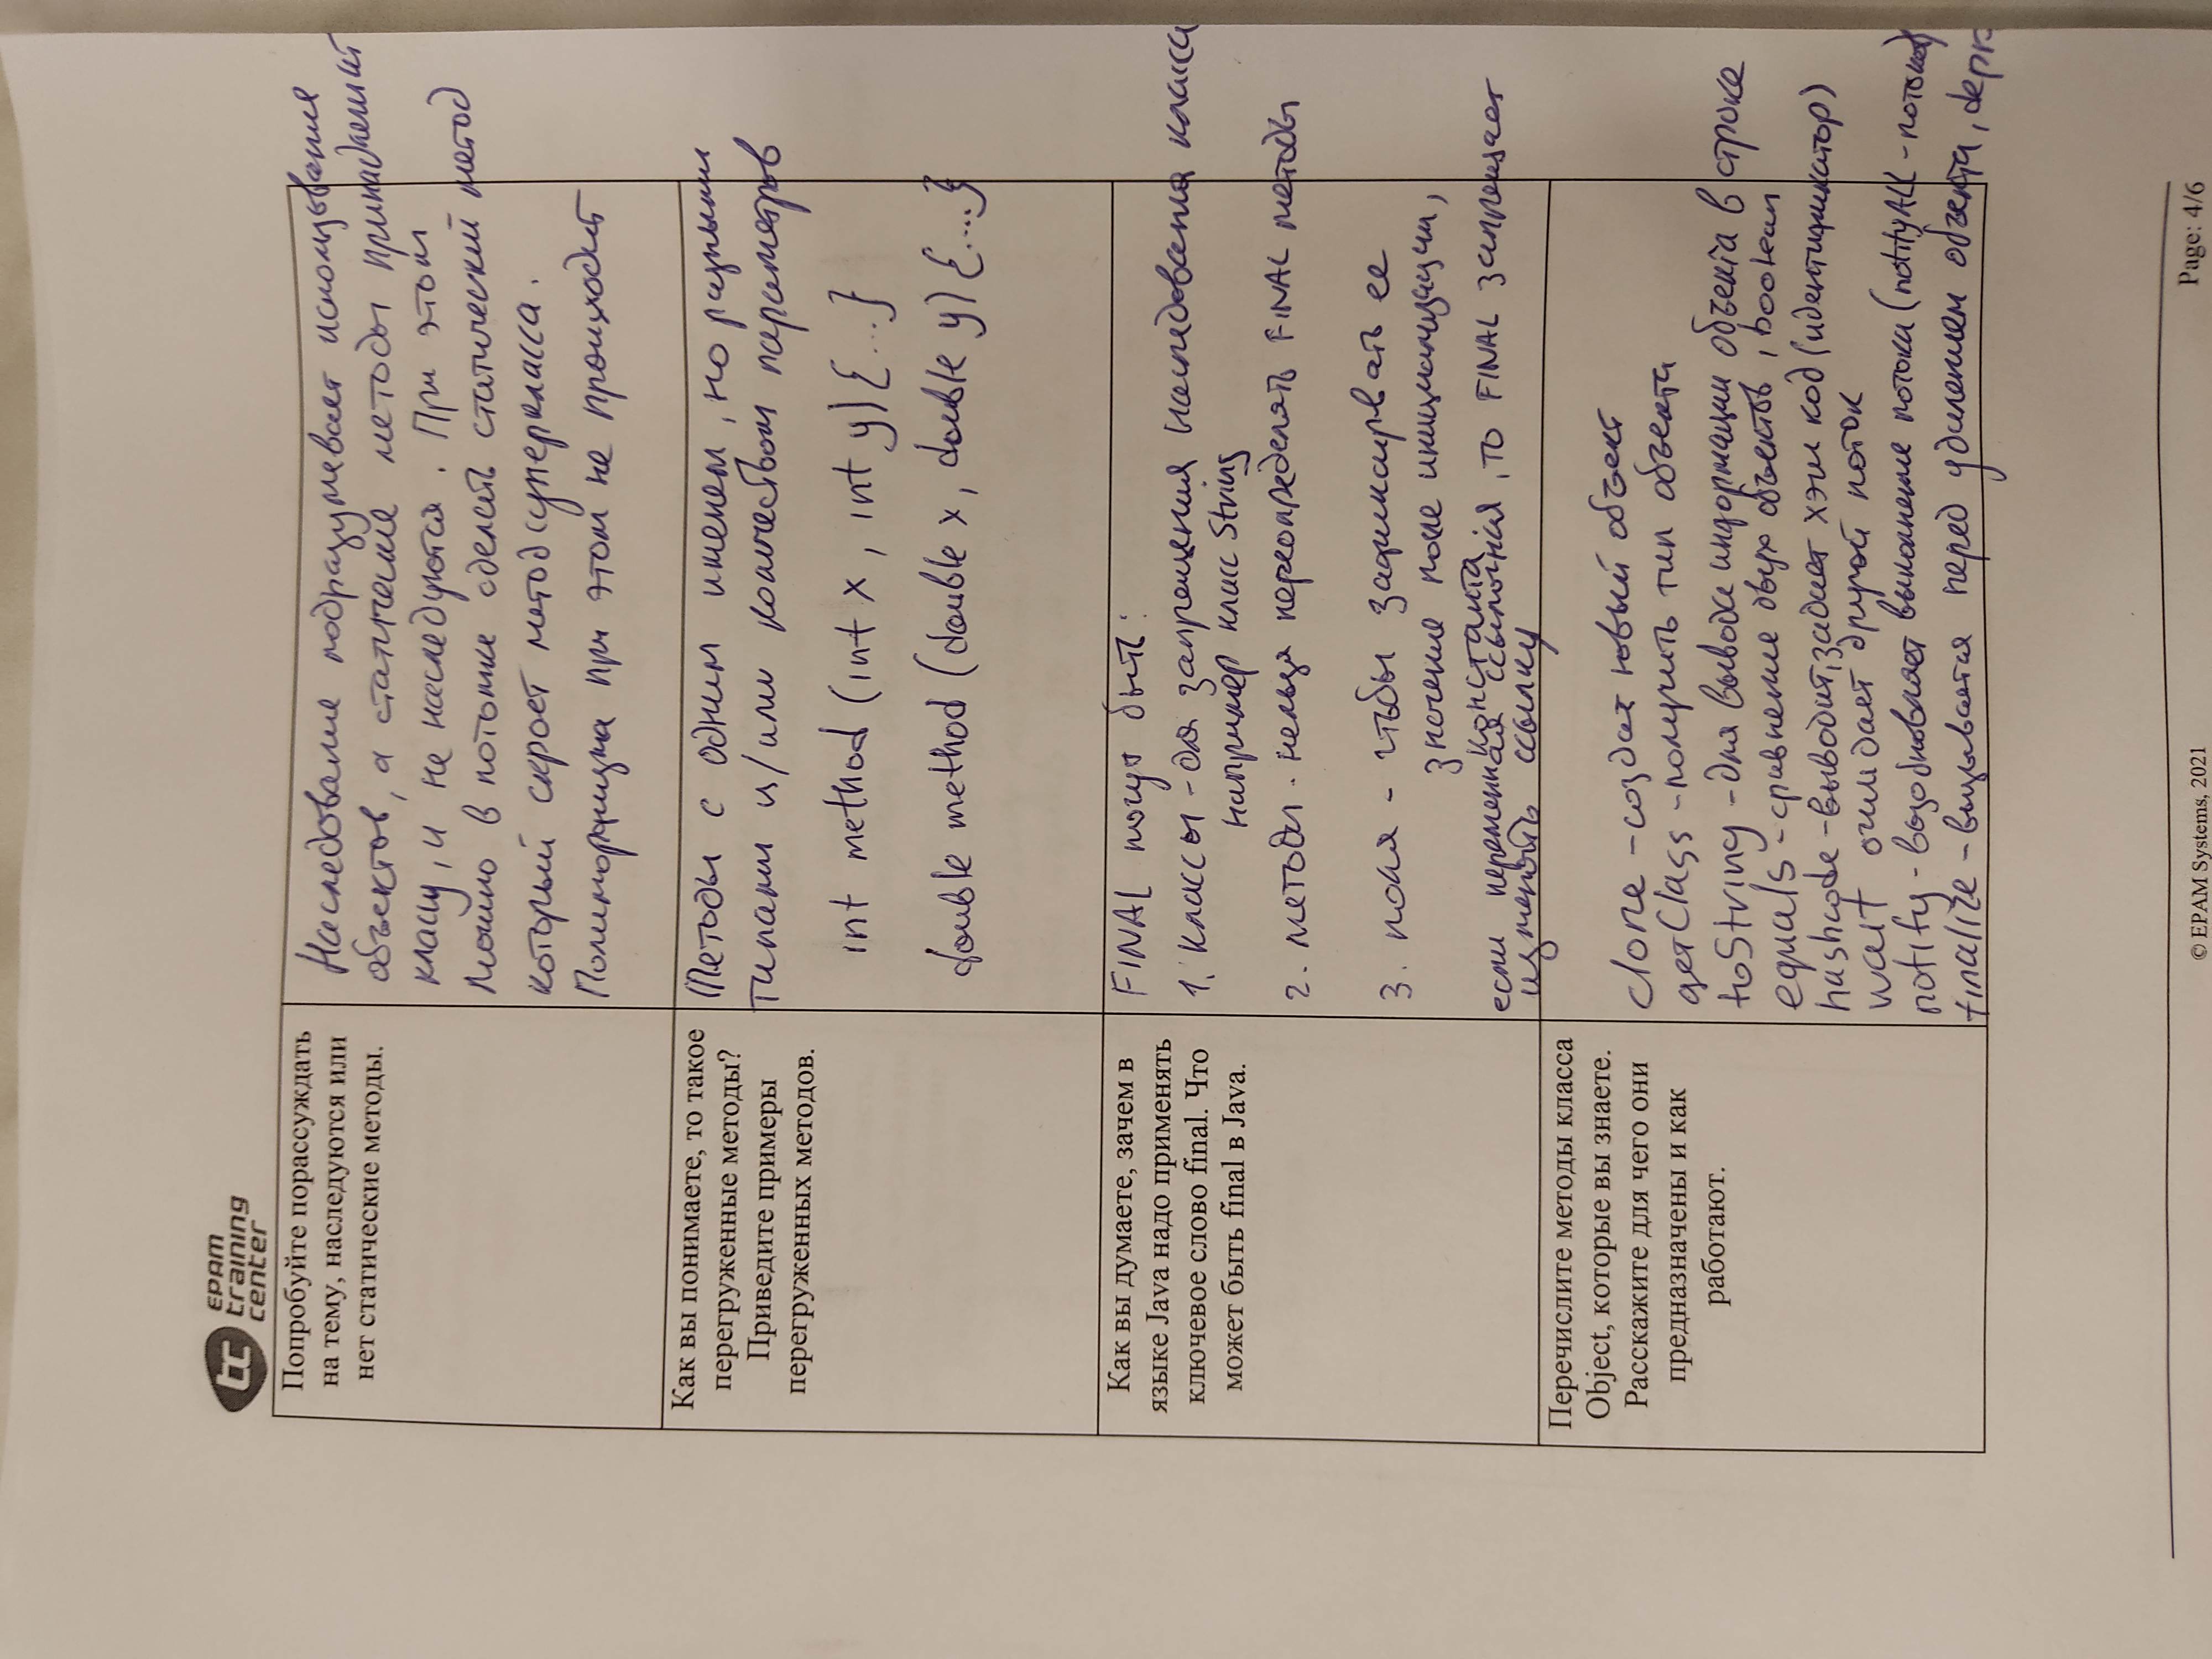 EPAM
training
center
Попробуйте порассуждать
на тему, наследуются или
нет статические методы.
Наследование подразумевает использование
объектов, а статические методы принадлежит
классу, и не наследуются. При этом
можно в потомке сделать статический метод
который скроет метод суперкласса.
Полиморфизма при этом не происходит
Как вы понимаете, то такое
перегруженные методы?
Приведите примеры
перегруженных методов.
Методы с одним именем, но разными
типами и/или количеством параметров
int method (int x, int y) {...}
double method (double x, double y) {....}
Как вы думаете, зачем в
языке Java надо применять
ключевое слово final. Что
может быть final в Java.
FINAL могут быть:
1. Классы - для запрещения наследования класса
например класс String
2. методы - нельзя переопределять FINAL методы
3. поля - чтобы зафиксирвать ее
значение после инициализации,
константа.
если переменная ссылочная, то FINAL запрещает
изменять ссылку
Перечислите методы класса
Object, которые вы знаете.
Расскажите для чего они
предназначены и как
работают.
clone - создает новый объект
getClass - получить тип объекта
toString - для вывода информации объекта в строке
equals - сравнение двух объектов, boolean
hashcode - выводит, задает хэш код (идентификатор)
wait ожидает другой поток
notify - возобновляет выполнение потока (notifyALL - потоков)
finalize - вызывается перед удалением объекта,
© EPAM Systems, 2021
Page: 4/6